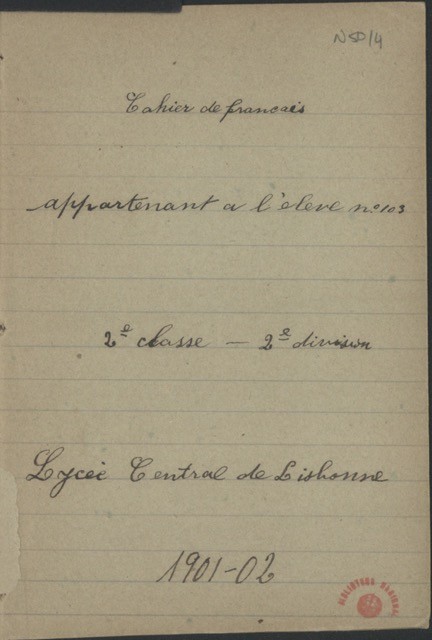 N SD/4
Cahier de francais
appartenant a l'élève nº 103
2e classe — 2e division
Lycée Central de Lisbonne
1901-02
BIBLIOTECA NACIONAL